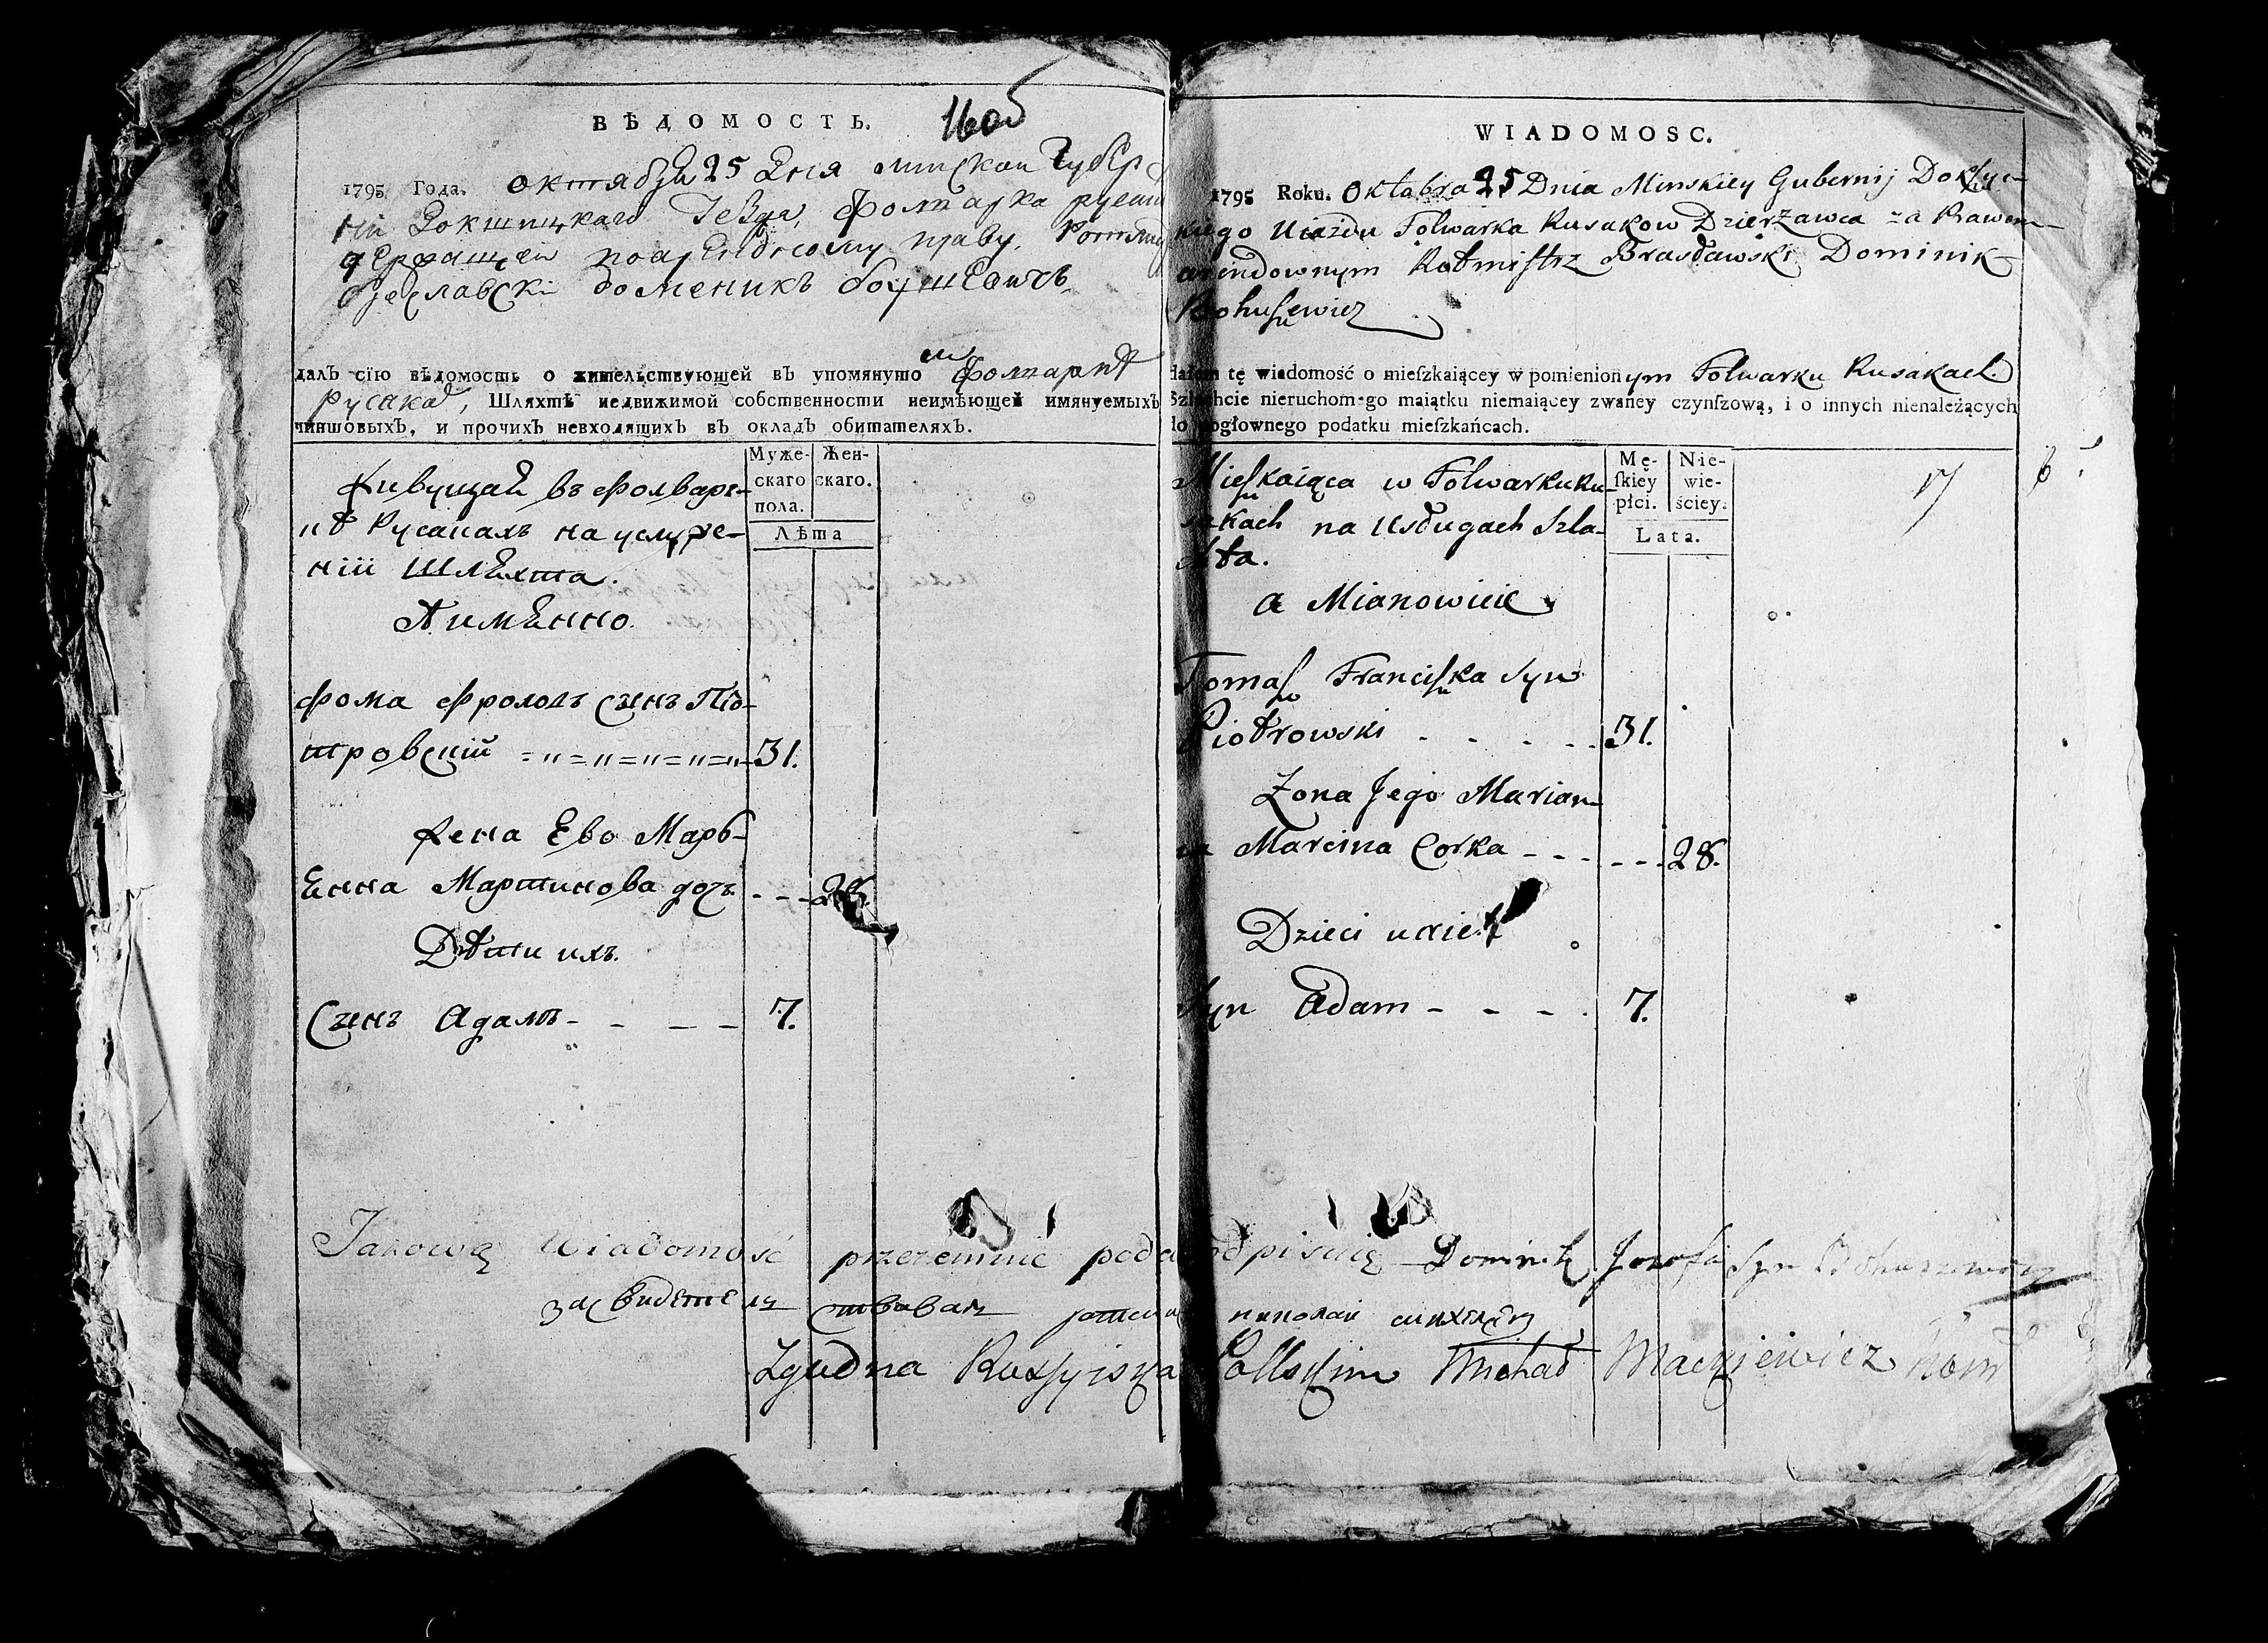 ВѢДОМОСТЬ.
1795 Года. октября 25 дня минской Губер
нiи Докшицкаго уезда, фолварка
держащей поарендовному праву, Ротмис
браславскi доменикъ богушевичъ
далъ сїю вѣдомость о жительствующей въ упомянутомъ фолваркѣ
Русака, Шляхтѣ недвижимой собственности неимѣющей имянуемыхъ
чиншовыхъ, и прочихъ невходящихъ въ окладъ обитателяхъ.
Муже-скаго пола. Жен-скаго.
Лѣта
Живущай въ фолвар-
кѣ Русакахъ на услуже-
нiи Шляхта.
А имѣнно.
Фома Фроловъ сынъ Піо-
тровскiй 31.
Жена Ево Марь-
Енна Мартинова дочь 28.
Дѣти ихъ.
Сынъ Адамъ 7.
WIADOMOSC.
1795 Roku. Oktabra 25 Dnia Minskiey Gubernij Dokszyc-
kiego Uiazdu Folwarka Rusakow Dzierżawca za Prawem
arendownym Rotmistrz Brasławski Dominik
Bohuszewicz
dałem tę wiadomość o mieſzkaiącey w pomienionym Folwarku Rusakach.
Szlachcie nieruchomego maiątku niemaiącey zwaney czynſzową, i o innych nienależących
do pogłownego podatku mieſzkańcach.
Mę-ſkiey płci. Nie-wie-ściey.
Lata.
17
Mieszkaiąca w Folwarku Ru-
sakach na Usługach Szla-
chta.
a Mianowicie
Tomasz Franciszka Syn
Piotrowski 31.
Żona Jego Marian-
na Marcina Corka 28.
Dzieci u nich
Syn Adam 7.
Jakową Wiadomość przezemnie poda podpisuię Dominik Jozefa Syn Bohuszewicz
засвидетелствовал николай
Zgudna Rossyiska Polskim Michał Mackiewicz